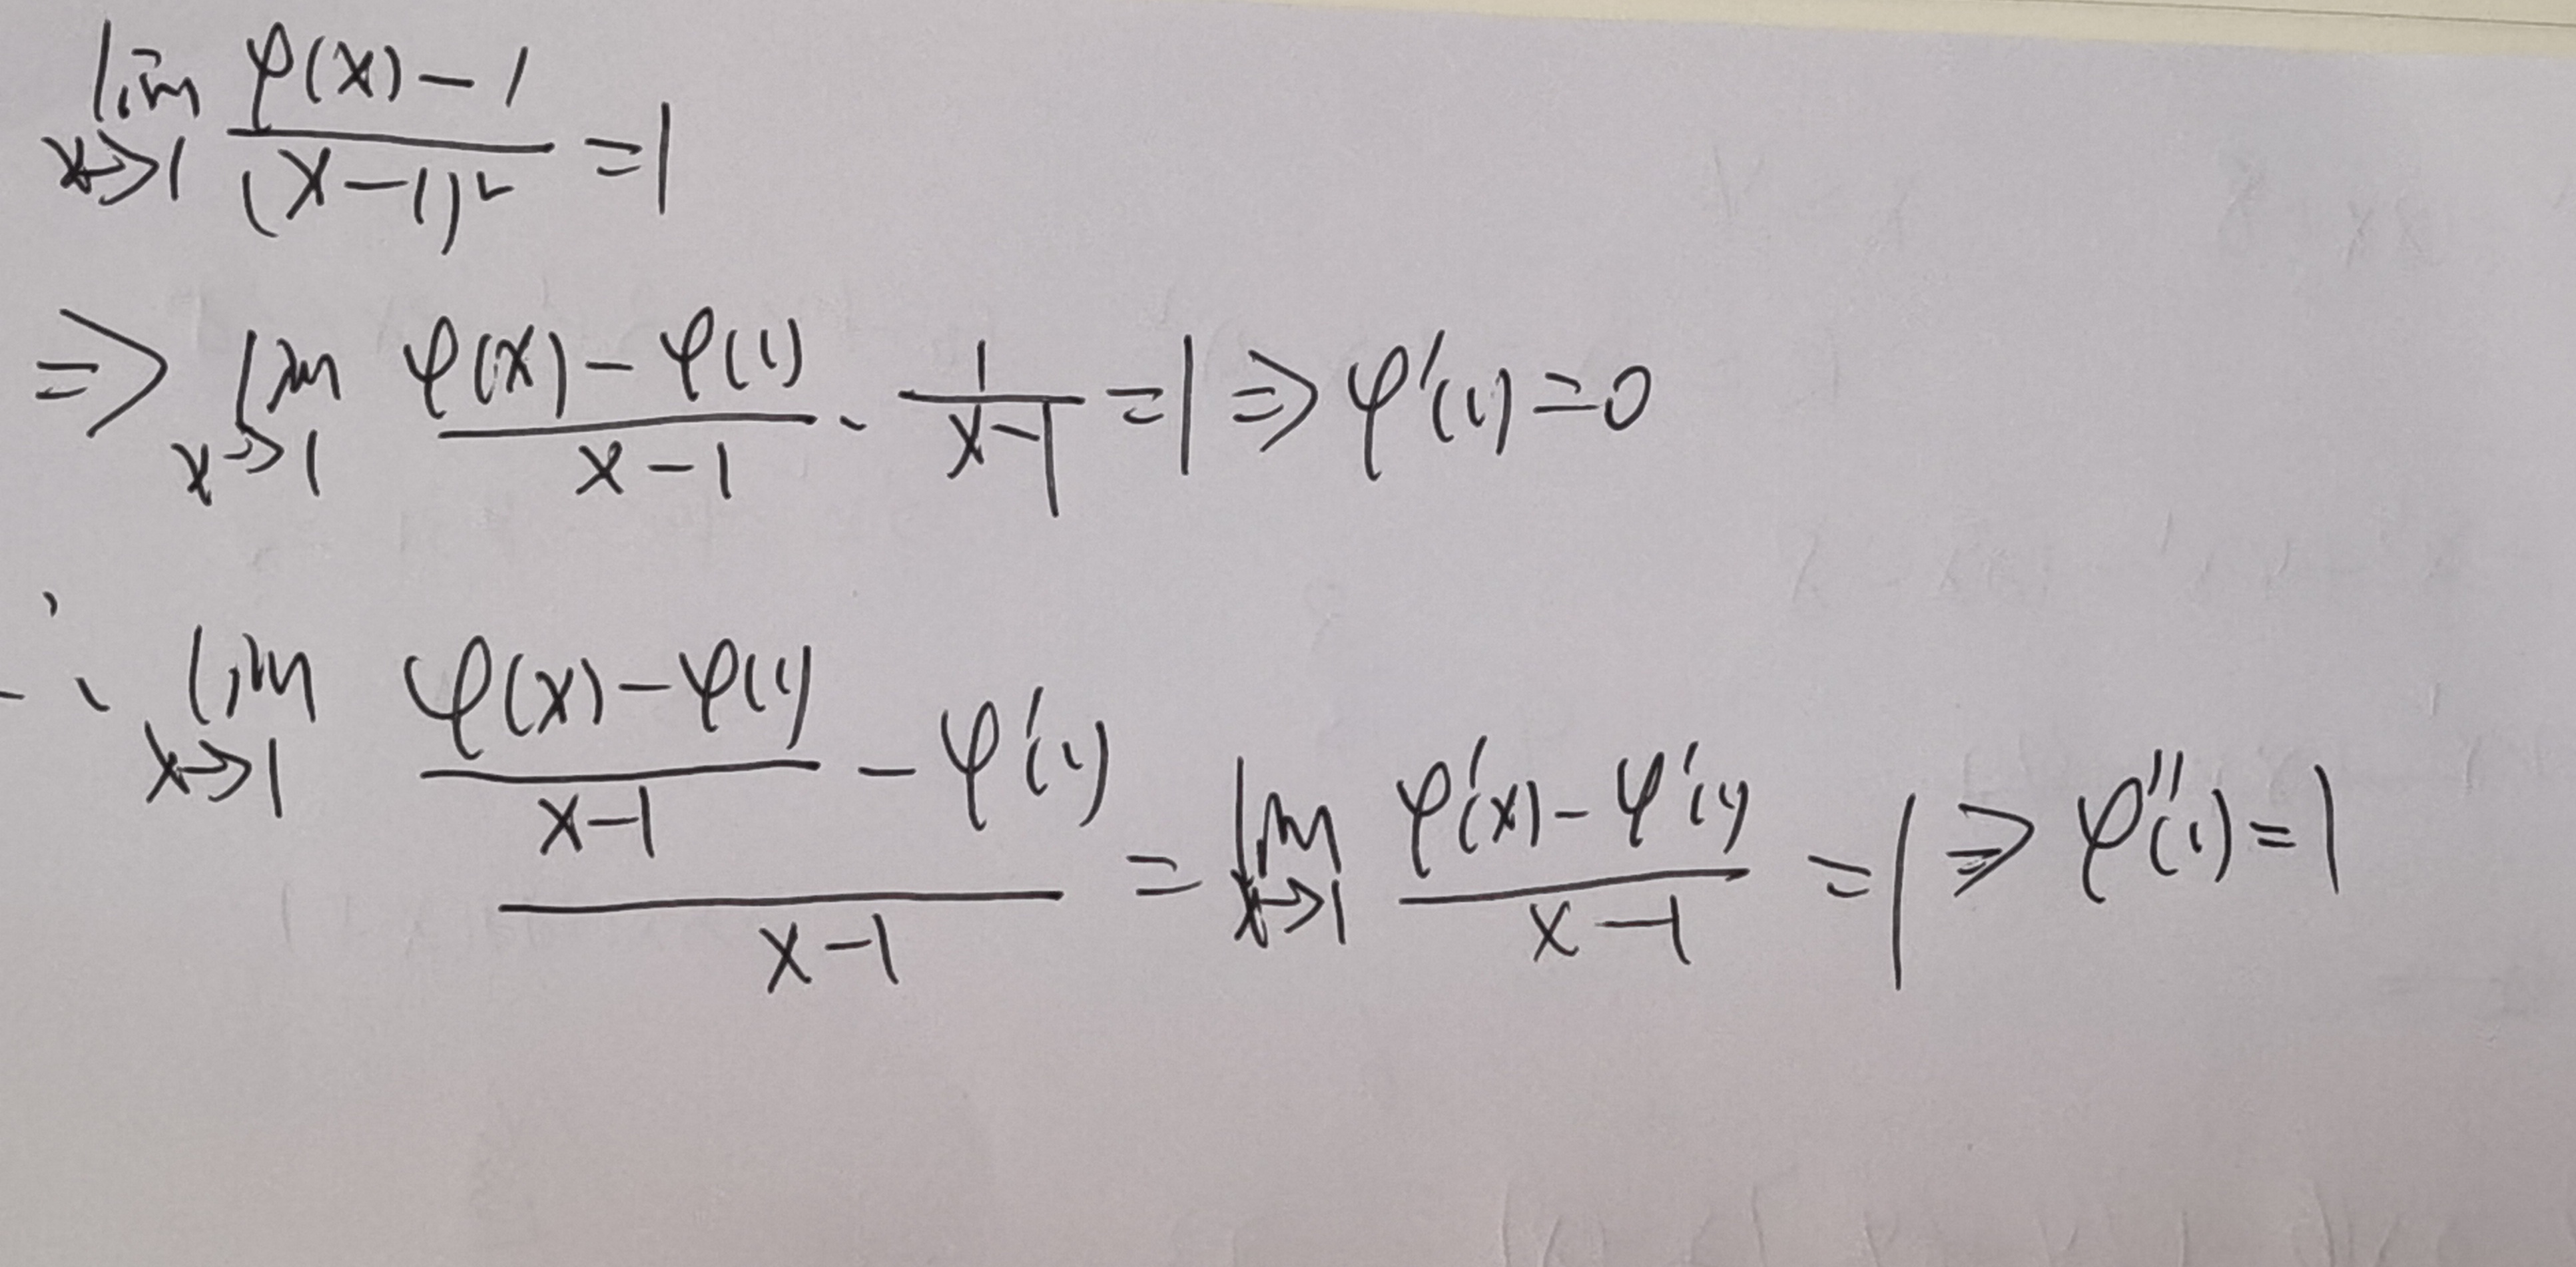 lim_{x→1} (φ(x)-1)/(x-1)² = 1
⇒ lim_{x→1} (φ(x)-φ(1))/(x-1) · 1/(x-1) = 1 ⇒ φ'(1) = 0
∴ lim_{x→1} ((φ(x)-φ(1))/(x-1) - φ'(1))/(x-1) = lim_{x→1} (φ'(x)-φ'(1))/(x-1) = 1 ⇒ φ''(1) = 1